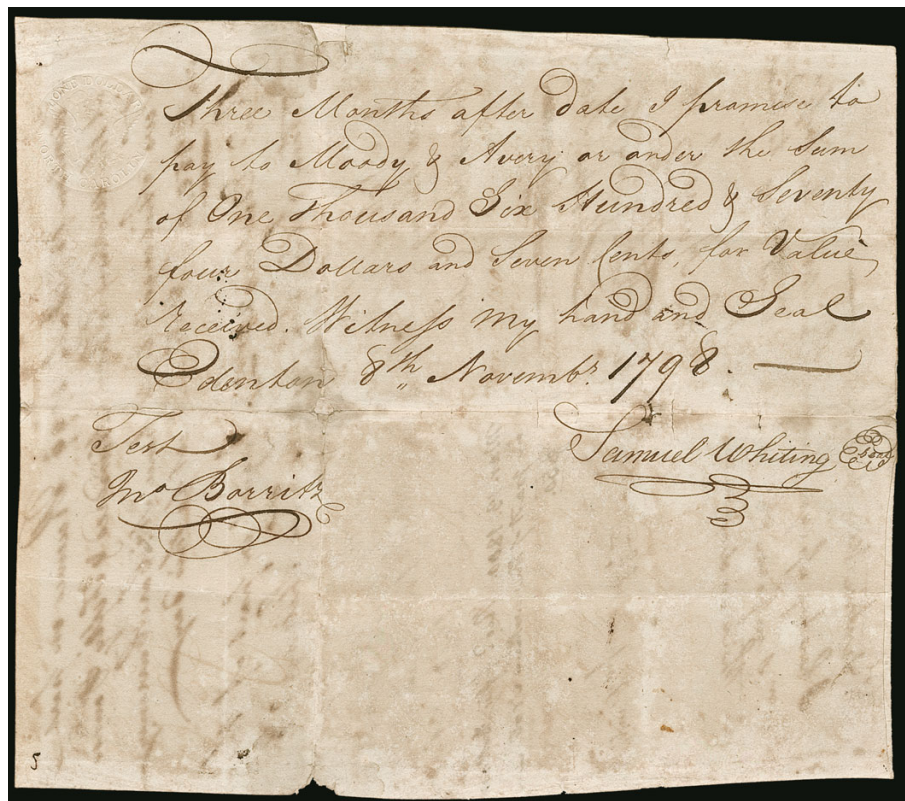 Three Months after date I promise to
pay to Moody & Avery or order the Sum
of One Thousand Six Hundred & Seventy
four Dollars and Seven Cents, for Value
Received. Witness my hand and Seal
Edenton 8th Novembr. 1798.
Test
Jno Borritz
Samuel Whiting Seal
5